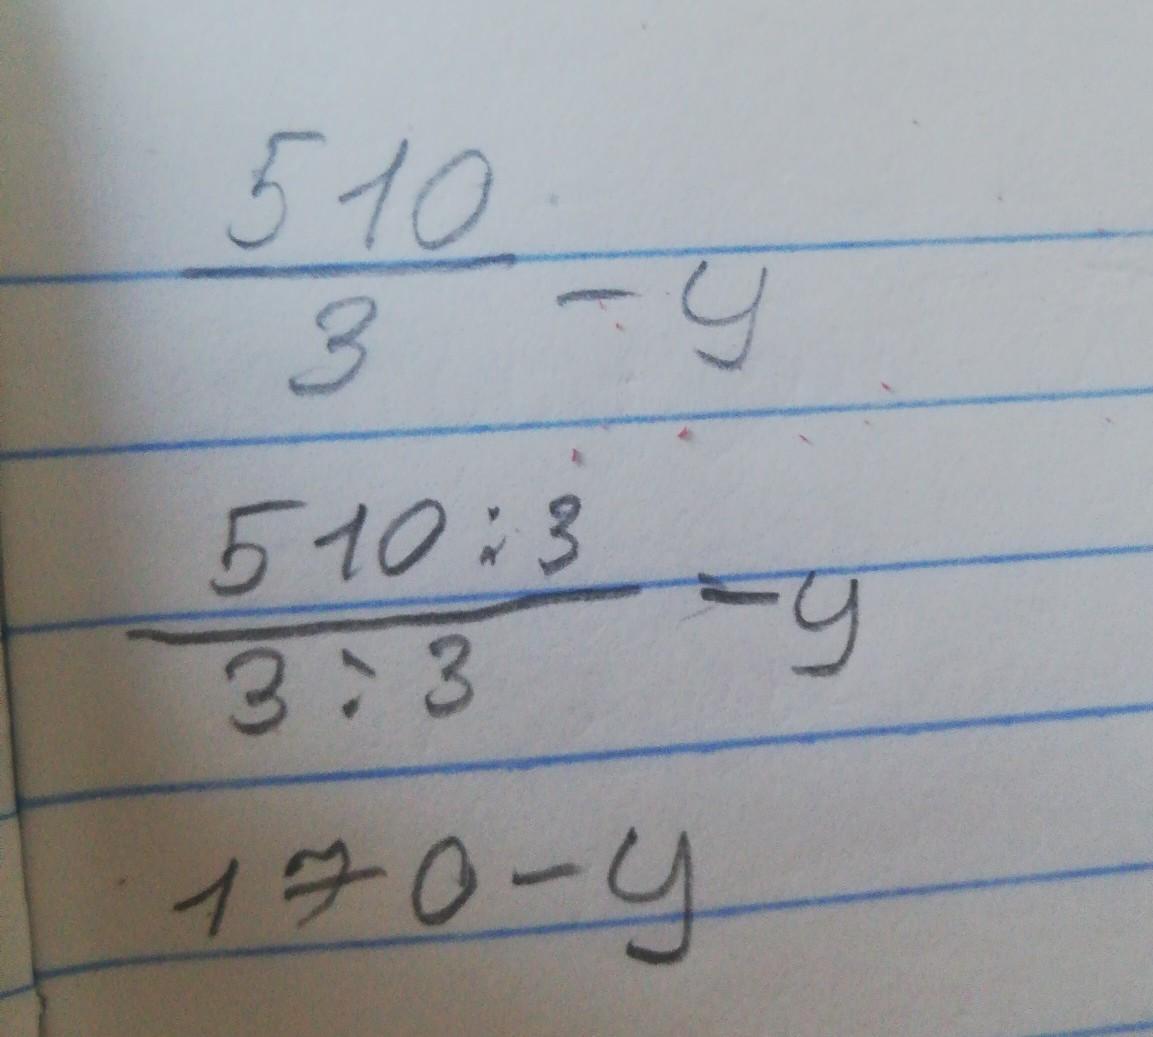 510
3 - y
510 : 3
3 : 3 - y
170 - y